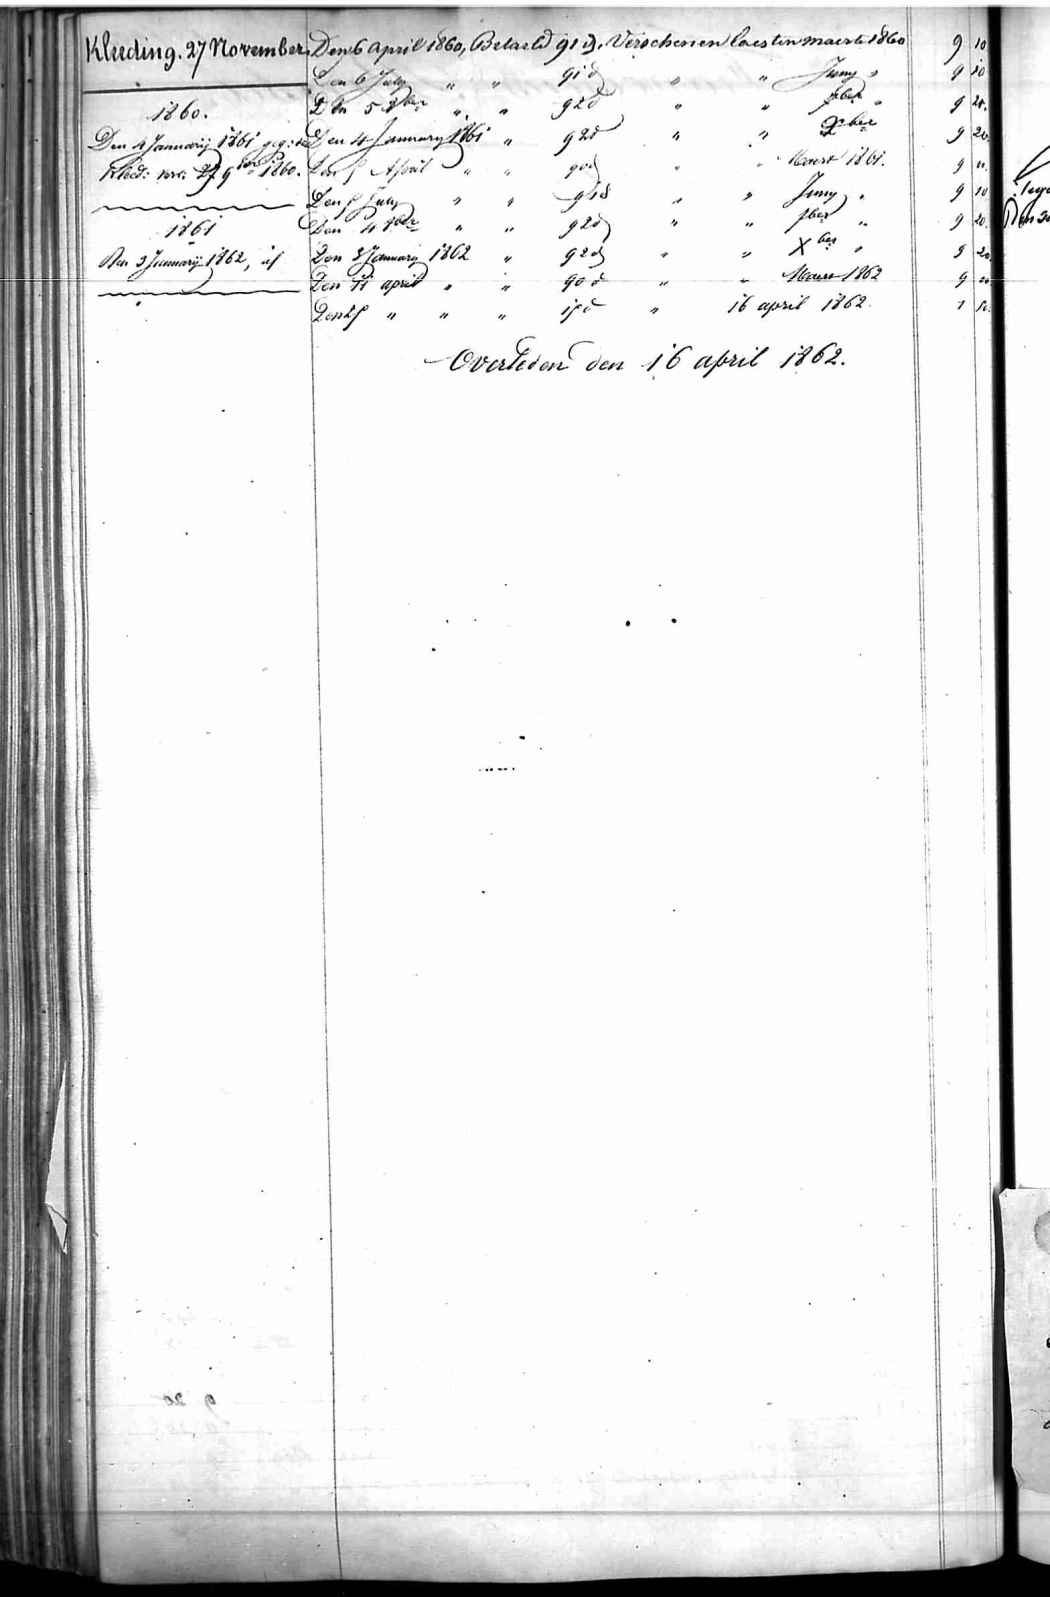 Kleeding. 27 November
1860.
Den 4 Januarij 1861 geg:
Kleed: 27 9ber 1860.
1861
Den 3 Januarij 1862, af
Den 6 april 1860, Betaeld 91 d. Verschenen laesten maerte 1860 9 10
Den 6 July " " 91 d " " Juny " 9 10
Den 5 8ber " " 92 d " " 7ber " 9 20.
Den 4 January 1861 " 92 d " " Xber 9 20.
Den 5 April " " 90 d " " Maert 1861. 9 "
Den 5 July " " 91 d " " Juny " 9 10
Den 4 8ber " " 92 d " " 7ber " 9 20.
Den 3 January 1862 " 92 d " " Xber " 9 20
Den 11 april " " 90 d " " Maert 1862 9 "
Den 25 " " " 15 d " 16 april 1862. 1 50.
Overleden den 16 april 1862.